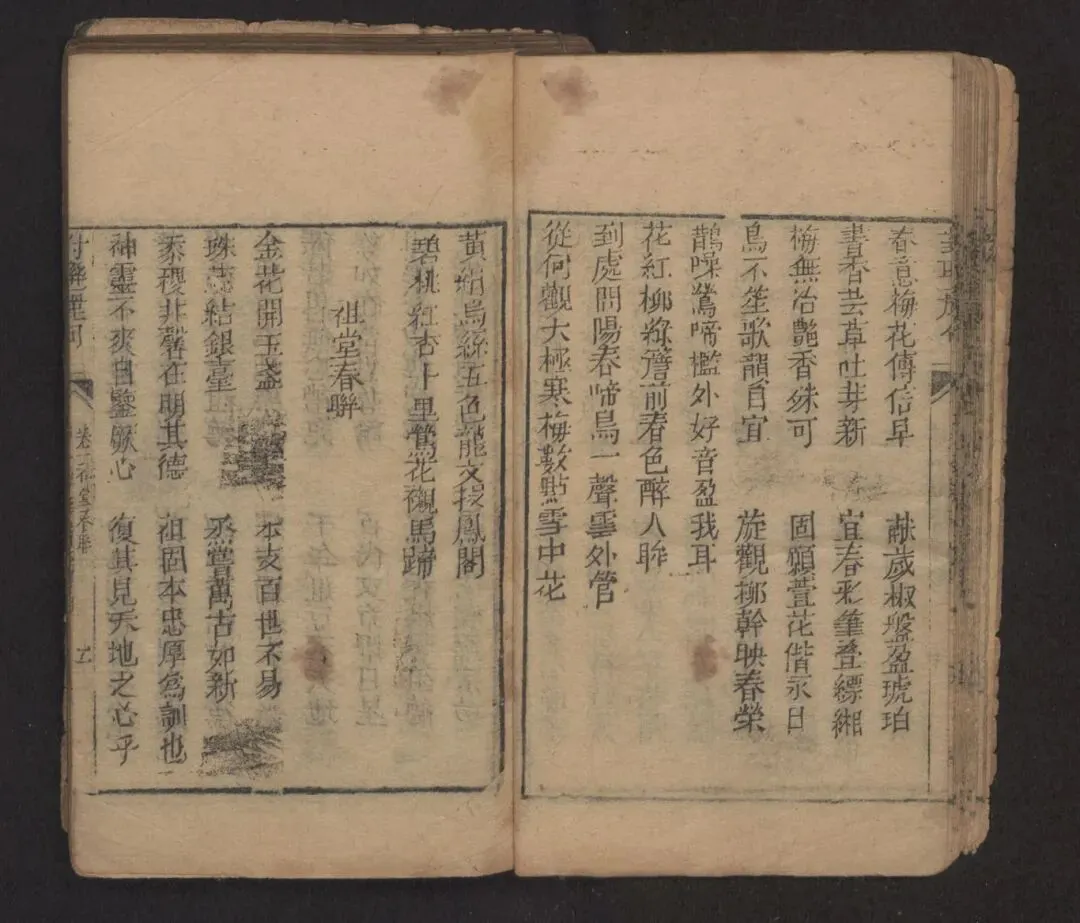 春意梅花傳信早 献歲椒盤盈琥珀
書香芸草吐芽新 宜春彩筆登縹緗
梅無冶艷香殊可 固願萱花偕永日
鳥不笙歌韻自宜 旋觀椒幹映春榮
鵲噪鶯啼檻外好音盈我耳
花紅柳綠簷前春色醉人眸
到處問陽春啼鳥一聲雲外管
從何觀大極寒梅數點雪中花
黃絹烏絲五色龍文授鳳閣
碧桃紅杏十里鶯花襯馬蹄
祖堂春聯
金花開玉盞 本支百世不易
珠蕊結銀毫 烝嘗萬古如新
黍稷非馨在明其德 祖固本忠厚為訓也
神靈不爽自鑒厥心 復其見天地之心乎